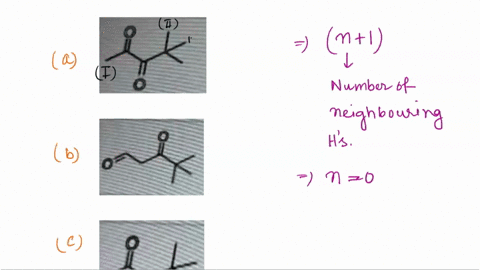 (a)
O
(II)
(I)
O
(b)
O
O
(c)
O
=> (n+1)
↓
Number of
neighbouring
H's.
=> n=0